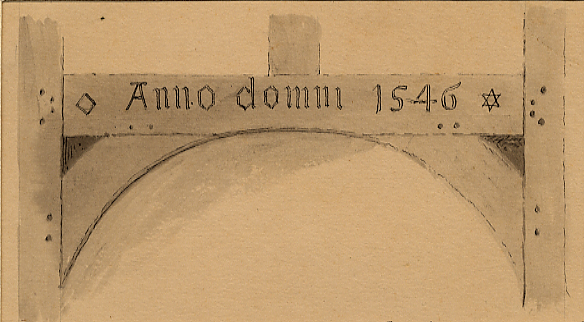 Anno domni 1546